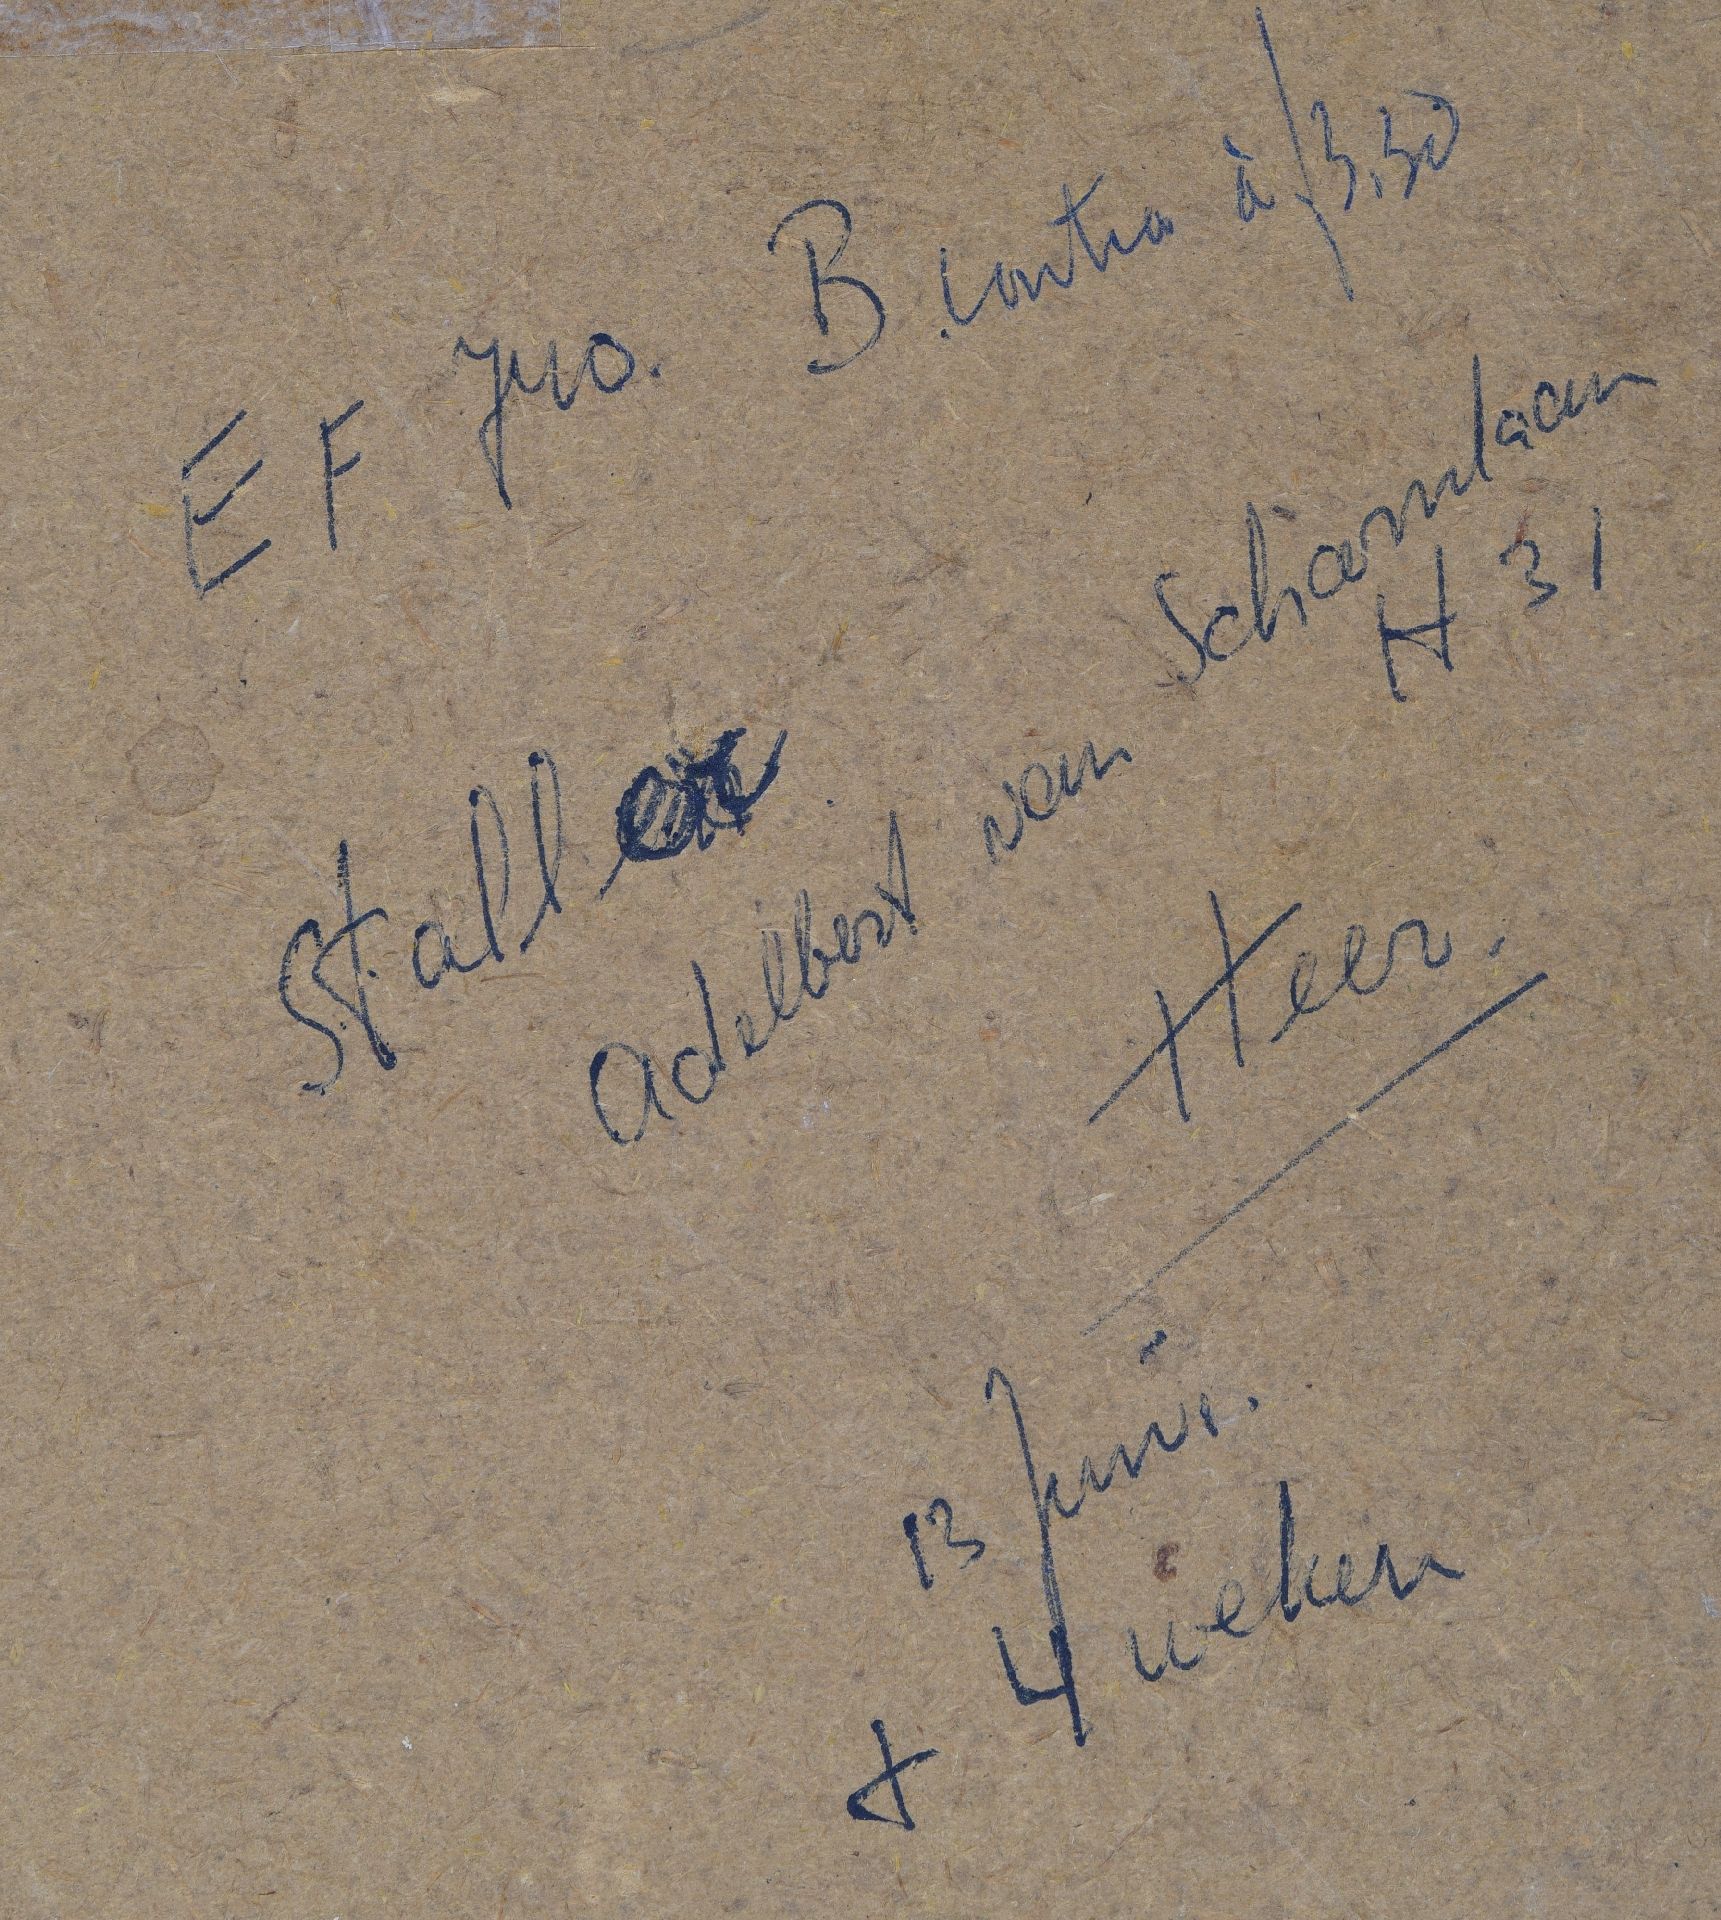 E F B contra à f 3,50
Stall
Adelbert van Scharnlaan
H 31
Heer.
13 Juni.
± 4 weken